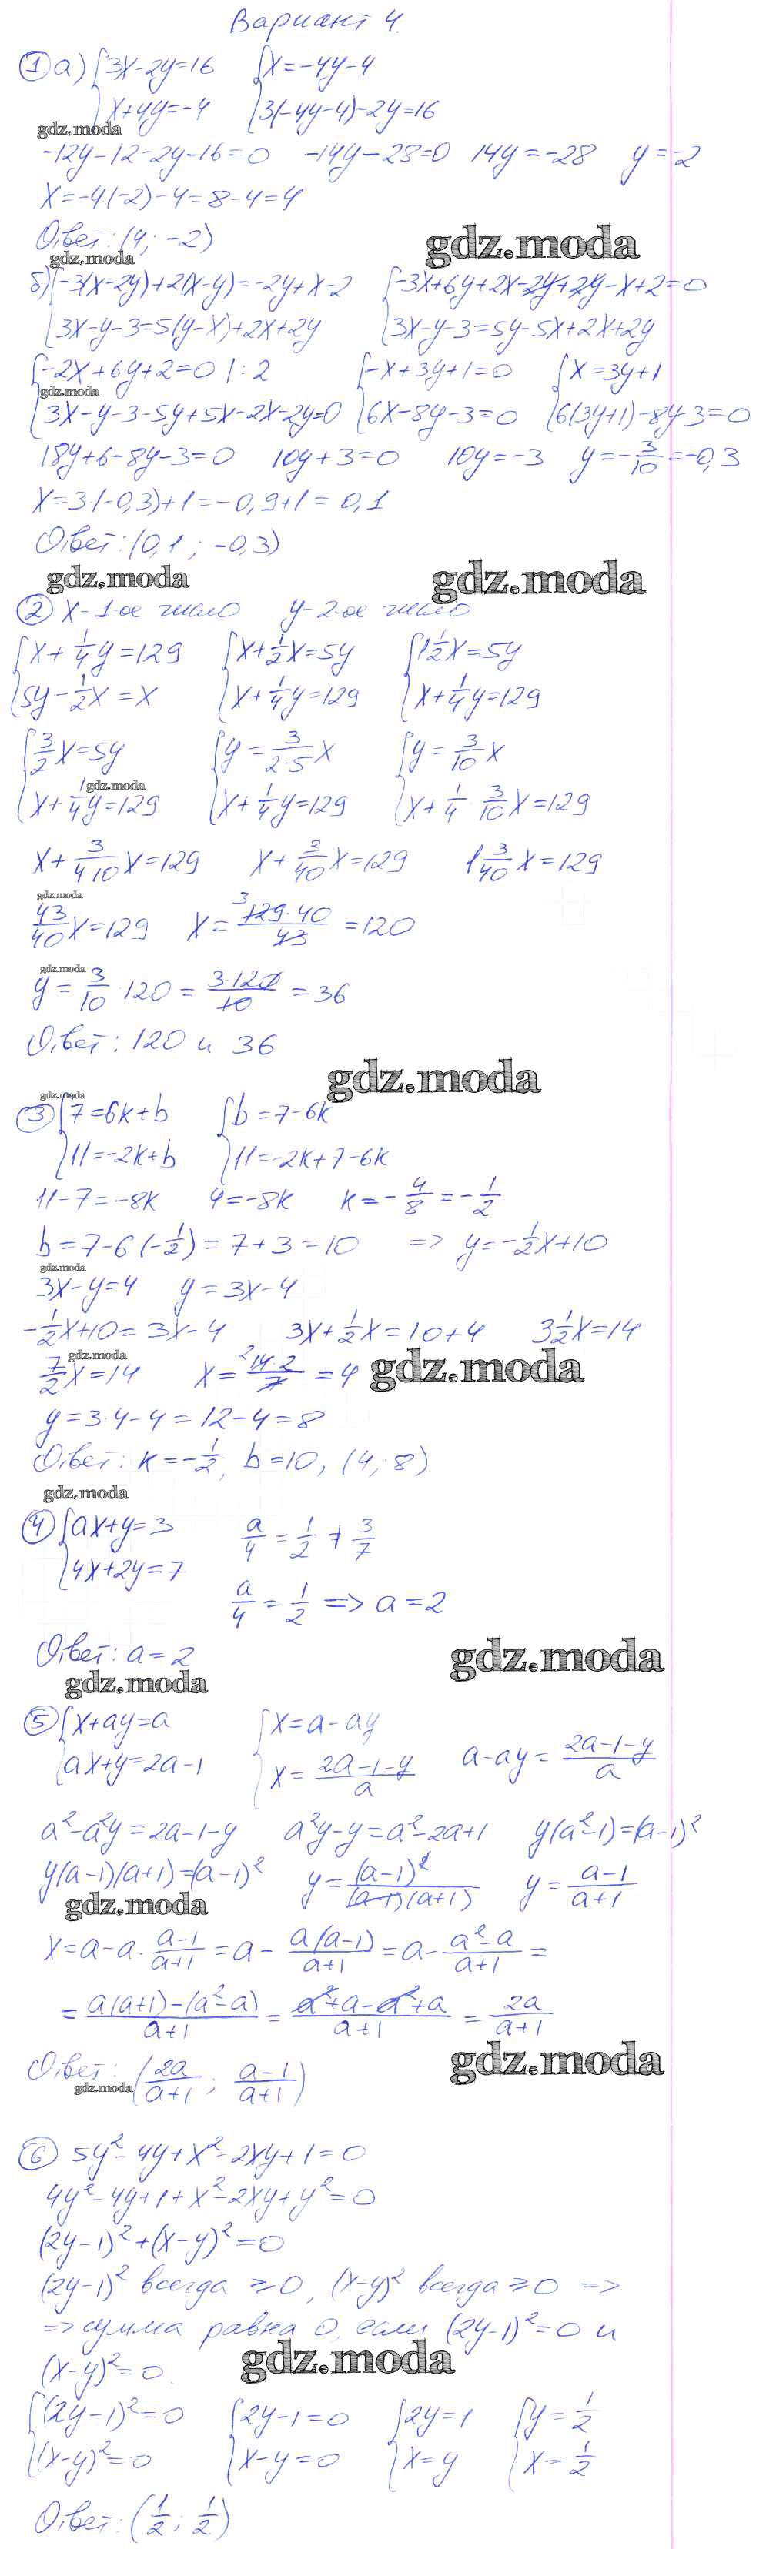 Вариант 4.
① а) {3x-2y=16 {x=-4y-4
{x+4y=-4 {3(-4y-4)-2y=16
gdz.moda
-12y-12-2y-16=0 -14y-28=0 14y=-28 y=-2
x=-4(-2)-4=8-4=4
Ответ: (4; -2)
gdz.moda
gdz.moda
б) {-3(x-2y)+2(x-y)=-2y+x-2 {-3x+6y+2x-2y+2y-x+2=0
{3x-y-3=5(y-x)+2x+2y {3x-y-3=5y-5x+2x+2y
{-2x+6y+2=0 |:2 {-x+3y+1=0 {x=3y+1
gdz.moda
{3x-y-3-5y+5x-2x-2y=0 {6x-8y-3=0 {6(3y+1)-8y-3=0
18y+6-8y-3=0 10y+3=0 10y=-3 y=-3/10=-0,3
x=3·(-0,3)+1=-0,9+1=0,1
Ответ: (0,1; -0,3)
gdz.moda gdz.moda
② x-1-ое число y-2-ое число
{x+1/4y=129 {x+1/2x=5y {1 1/2x=5y
{5y-1/2x=x {x+1/4y=129 {x+1/4y=129
{3/2x=5y {y=3/2·5x {y=3/10x
gdz.moda
{x+1/4y=129 {x+1/4y=129 {x+1/4 3/10x=129
x+3/4·10x=129 x+3/40x=129 1 3/40x=129
gdz.moda
43/40x=129 x=129·40/43=120 3
gdz.moda
y=3/10·120=3·120/10=36
Ответ: 120 и 36
gdz.moda
gdz.moda
③ {7=6k+b {b=7-6k
{11=-2k+b {11=-2k+7-6k
11-7=-8k 4=-8k k=-4/8=-1/2
b=7-6(-1/2)=7+3=10 => y=-1/2x+10
gdz.moda
3x-y=4 y=3x-4
-1/2x+10=3x-4 3x+1/2x=10+4 3 1/2x=14
gdz.moda gdz.moda
7/2x=14 x=14·2/7=4 2
y=3·4-4=12-4=8
Ответ: k=-1/2, b=10, (4; 8)
gdz.moda
④ {ax+y=3 a/4=1/2≠3/7
{4x+2y=7
a/4=1/2 => a=2
Ответ: a=2
gdz.moda
gdz.moda
⑤ {x+ay=a {x=a-ay
{ax+y=2a-1 {x=2a-1-y/a a-ay=2a-1-y/a
a²-a²y=2a-1-y a²y-y=a²-2a+1 y(a²-1)=(a-1)²
y(a-1)(a+1)=(a-1)² y=(a-1)²/(a-1)(a+1) y=a-1/a+1
gdz.moda
x=a-a·a-1/a+1=a-a(a-1)/a+1=a-a²-a/a+1=
=a(a+1)-(a²-a)/a+1=a²+a-a²+a/a+1=2a/a+1
gdz.moda
Ответ: (2a/a+1; a-1/a+1)
gdz.moda
⑥ 5y²-4y+x²-2xy+1=0
4y²-4y+1+x²-2xy+y²=0
(2y-1)²+(x-y)²=0
(2y-1)² всегда ≥0, (x-y)² всегда ≥0 =>
=> сумма равна 0, если (2y-1)²=0 и
gdz.moda
(x-y)²=0.
{(2y-1)²=0 {2y-1=0 {2y=1 {y=1/2
{(x-y)²=0 {x-y=0 {x=y {x=1/2
Ответ: (1/2; 1/2)